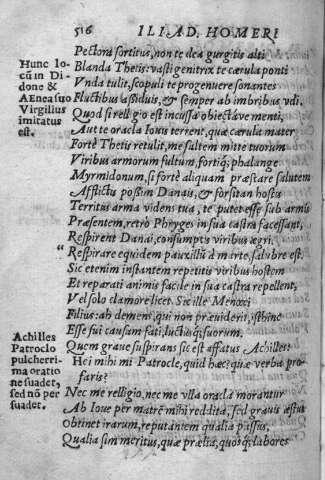 516 ILIAD. HOMERI
Pectora sortitus, non te dea gurgitis alti
Blanda Thetis: vasti genitrix te cærula ponti
Vnda tulit, scopuli te progenuere sonantes
Fluctibus assiduis, & semper ab imbribus vdi.
Quod si relligio est incussa obiectave menti,
Aut te oracla Iouis terrent, quæ cærula mater
Fortè Thetis retulit, me saltem mitte tuorum
Viribus armorum fultum, fortiq; phalange
Myrmidonum, si fortè aliquam præstare salutem
Afflictis possim Danais, & forsitan hostis
Territus arma videns tua, te putet esse sub armis
Præsentem, retrò Phryges in sua castra facessant,
Respirent Danai, consumptis viribus ægri.
" Respirare equidem pauxillũ à marte, salubre est.
Sic etenim instantem repetitis viribus hostem
Et reparati animis facile in sua castra repellent,
Vel solo clamore licet. Sic ille Menœti
Filius: ah demens, qui non præuiderit, isthinc
Esse fui causam fati, luctusq; suorum.
Quem graue suspirans sic est affatus Achilles:
Hei mihi mi Patrocle, quid hæc? quæ verba profaris?
Nec me relligio, nec me vlla oracla morantur
Ab Ioue per matrẽ mihi reddita, sed grauis æstus
Obtinet irarum, reputantem qualia passus,
Qualia sim meritus, quæ prælia, quosq; labores
Hunc locũ in Didone & Aenea suo Virgilius imitatus est.
Achilles Patroclo pulcherrima oratione suadet, sed nõ persuadet.